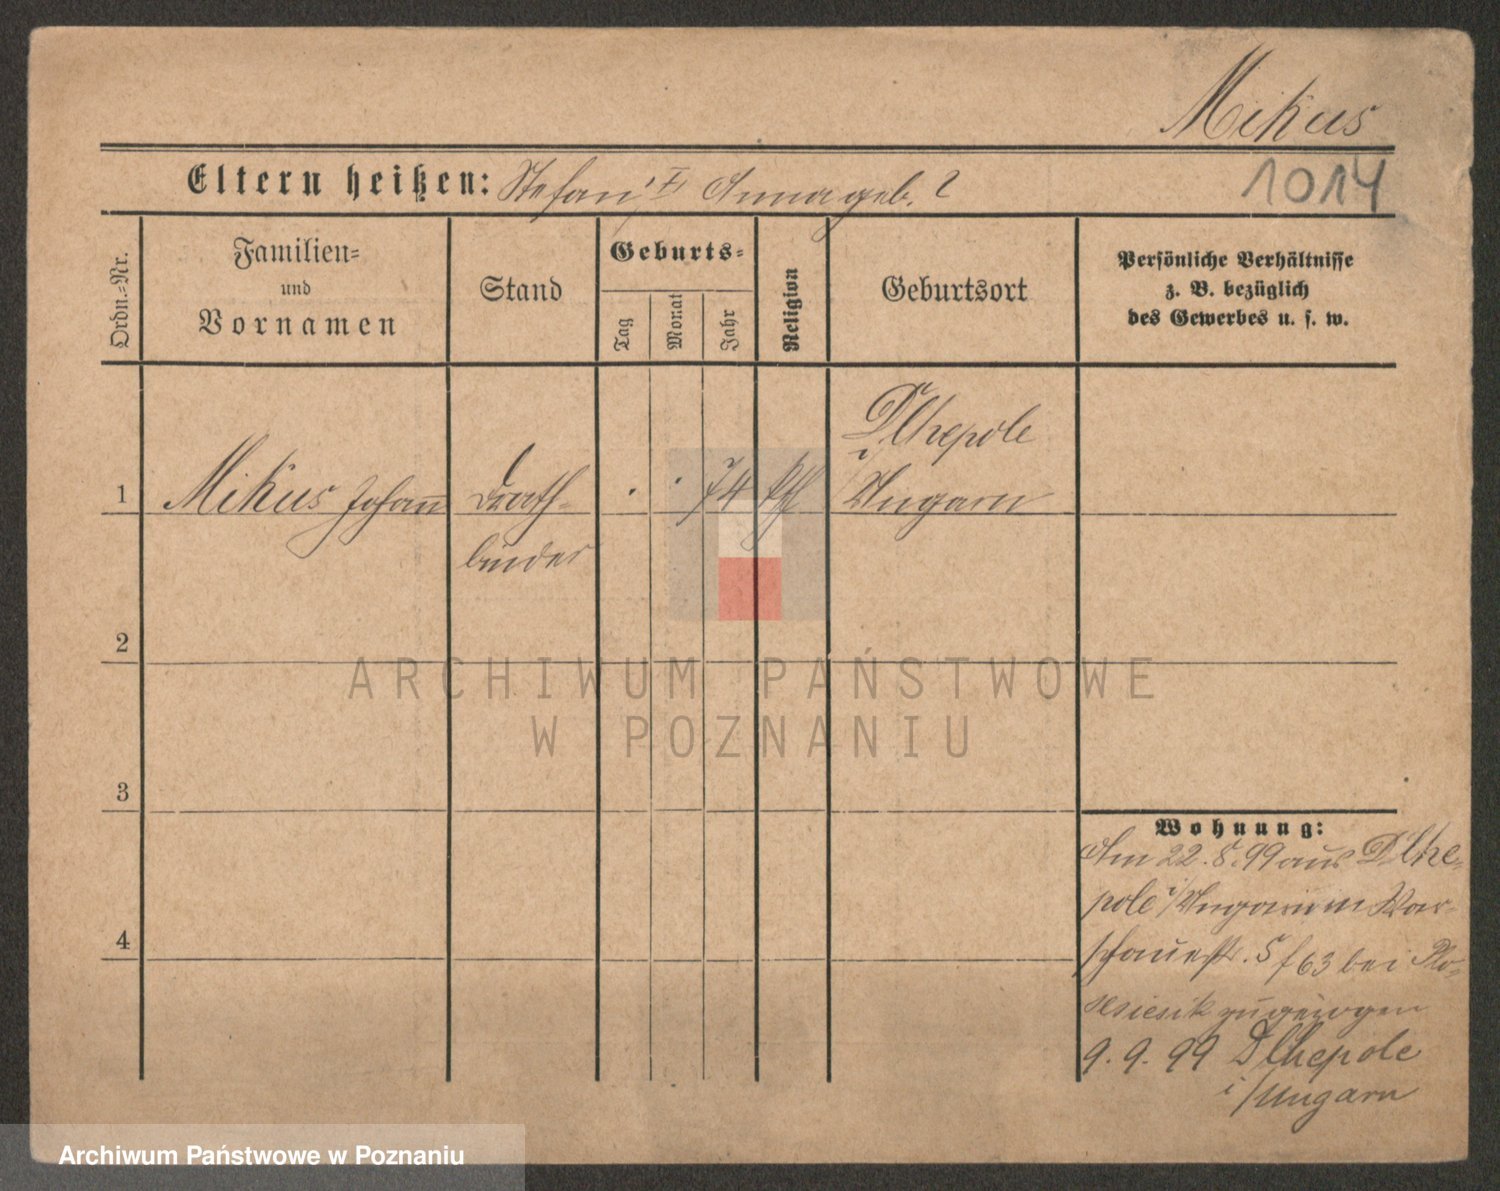 Mikus
1014
Eltern heißen: Stefan, Anna geb. ?
Ordn.-Nr.
Familien-
und
Vornamen
Stand
Geburts-
Tag
Monat
Jahr
Religion
Geburtsort
Persönliche Verhältnisse
z. B. bezüglich
des Gewerbes u. s. w.
1
Mikus Johann
Drath-
binder
74
kth
Dlhepole
i/
Ungarn
2
3
4
Wohnung:
Am 22.5.99 aus Dlhe-
pole i/Ungarn in War-
schauerstr. 5/63 bei
zugezogen
9.9.99 Dlhepole
i/Ungarn
ARCHIWUM PAŃSTWOWE
W POZNANIU
Archiwum Państwowe w Poznaniu